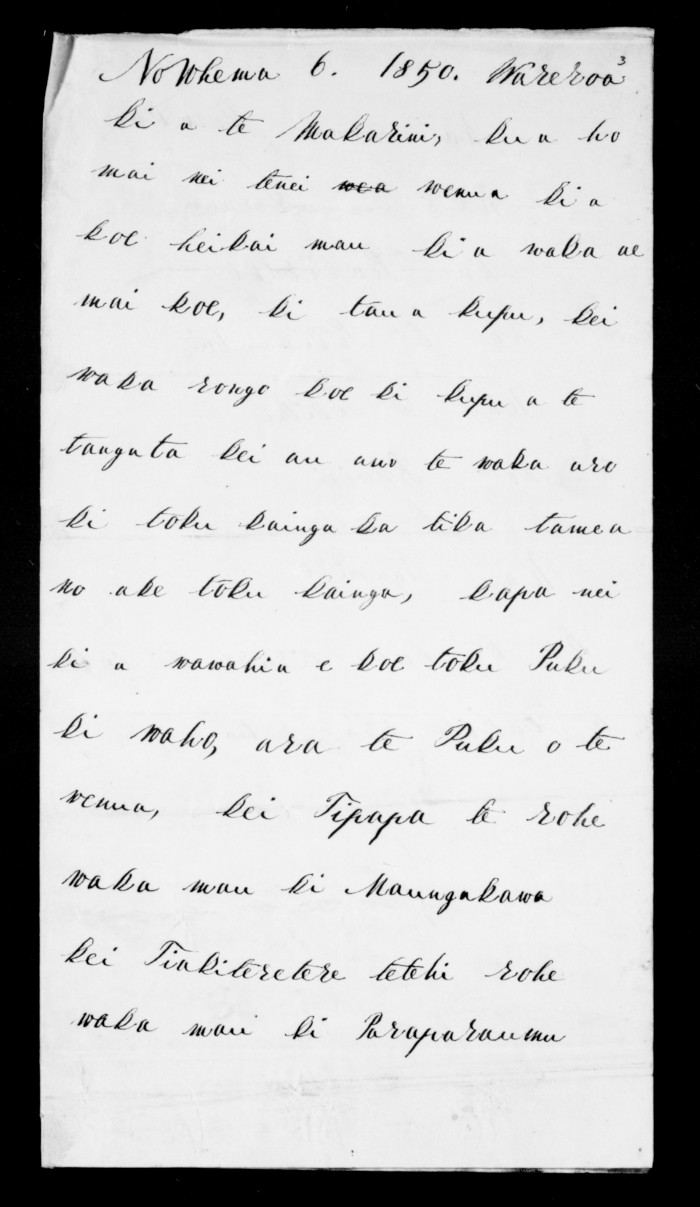 NoWhema 6. 1850. Wareroa 3
ki a te Makarini, ku a ho
mai nei tenei wea wenua ki a
koe heikai mau ki a waka ae
mai koe, ki tau a kupu, kei
waka rongo koe ki kupu a te
tangata kei au ano te waka aro
ki toku kainga ka tika tamea
no ake toku kainga, kapa nei
ki a wawahia e koe toku Puku
ki waho, ara te Puku o te
wenua, kei Tipapa te rohe
waka mau ki Maungakawa
kei Tiukiteretere tetehi rohe
waka mau ki Paraparaumu